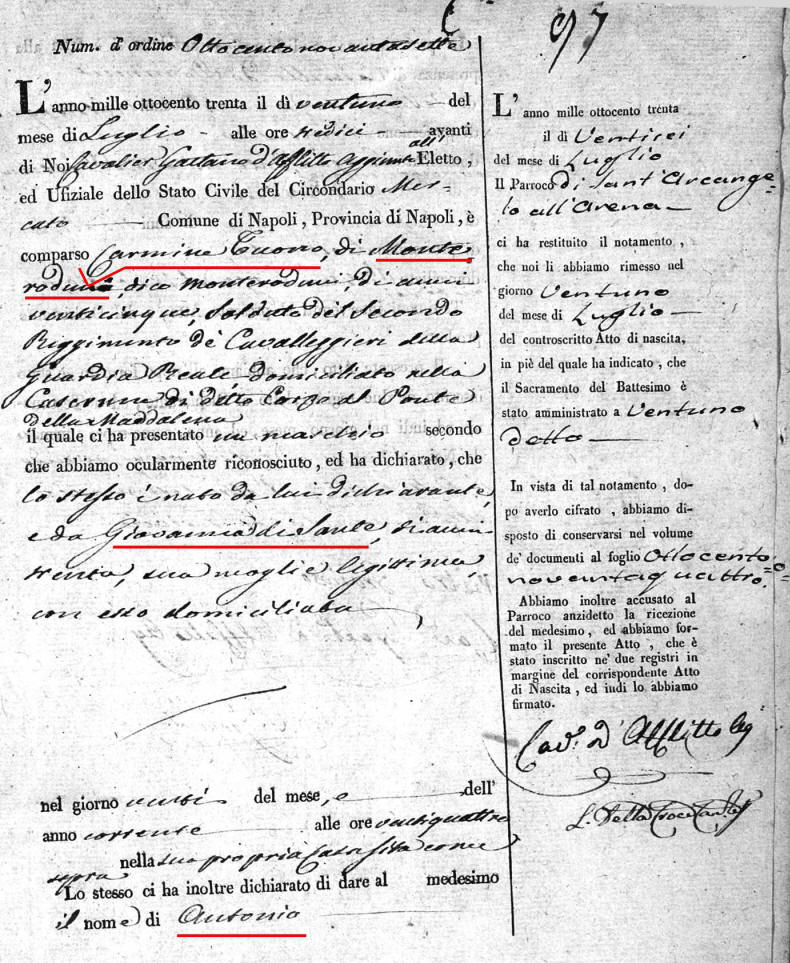 97
Num. d'ordine Ottocentonovantasette
L'anno mille ottocento trenta il dì ventuno del
mese di Luglio alle ore tredici avanti
di Noi Cavalier Gaetano d'Afflitto Aggiunto all' Eletto,
ed Ufiziale dello Stato Civile del Circondario Mer-
cato Comune di Napoli, Provincia di Napoli, è
comparso Carmine Tuorro, di Monte
roduni, dico Monteroduni, di anni
venticinque, Soldato del Secondo
Reggimento de' Cavalleggieri della
Guardia Reale domiciliato nella
Caserma di detto Corpo al Ponte
della Maddalena
il quale ci ha presentato un maschio secondo
che abbiamo ocularmente riconosciuto, ed ha dichiarato, che
lo stesso è nato da lui dichiarante,
e da Giovanna di Sante, di anni
trenta, sua moglie legittima,
con esso domiciliata
nel giorno venti del mese, e dell'
anno corrente alle ore ventiquattro
nella sua propria Casa sita come
sopra
Lo stesso ci ha inoltre dichiarato di dare al medesimo
il nome di Antonio
L'anno mille ottocento trenta
il dì Ventisei
del mese di Luglio
Il Parroco di Sant'Arcange-
lo all'Arena
ci ha restituito il notamento,
che noi li abbiamo rimesso nel
giorno Ventuno
del mese di Luglio
del controscritto Atto di nascita,
in piè del quale ha indicato, che
il Sacramento del Battesimo è
stato amministrato a Ventuno
detto
In vista di tal notamento, do-
po averlo cifrato, abbiamo di-
sposto di conservarsi nel volume
de' documenti al foglio Ottocento
novantaquattro.
Abbiamo inoltre accusato al
Parroco anzidetto la ricezione
del medesimo, ed abbiamo for-
mato il presente Atto, che è
stato inscritto ne' due registri in
margine del corrispondente Atto
di Nascita, ed indi lo abbiamo
firmato.
Cav. D'Afflitto
L. Della Croce